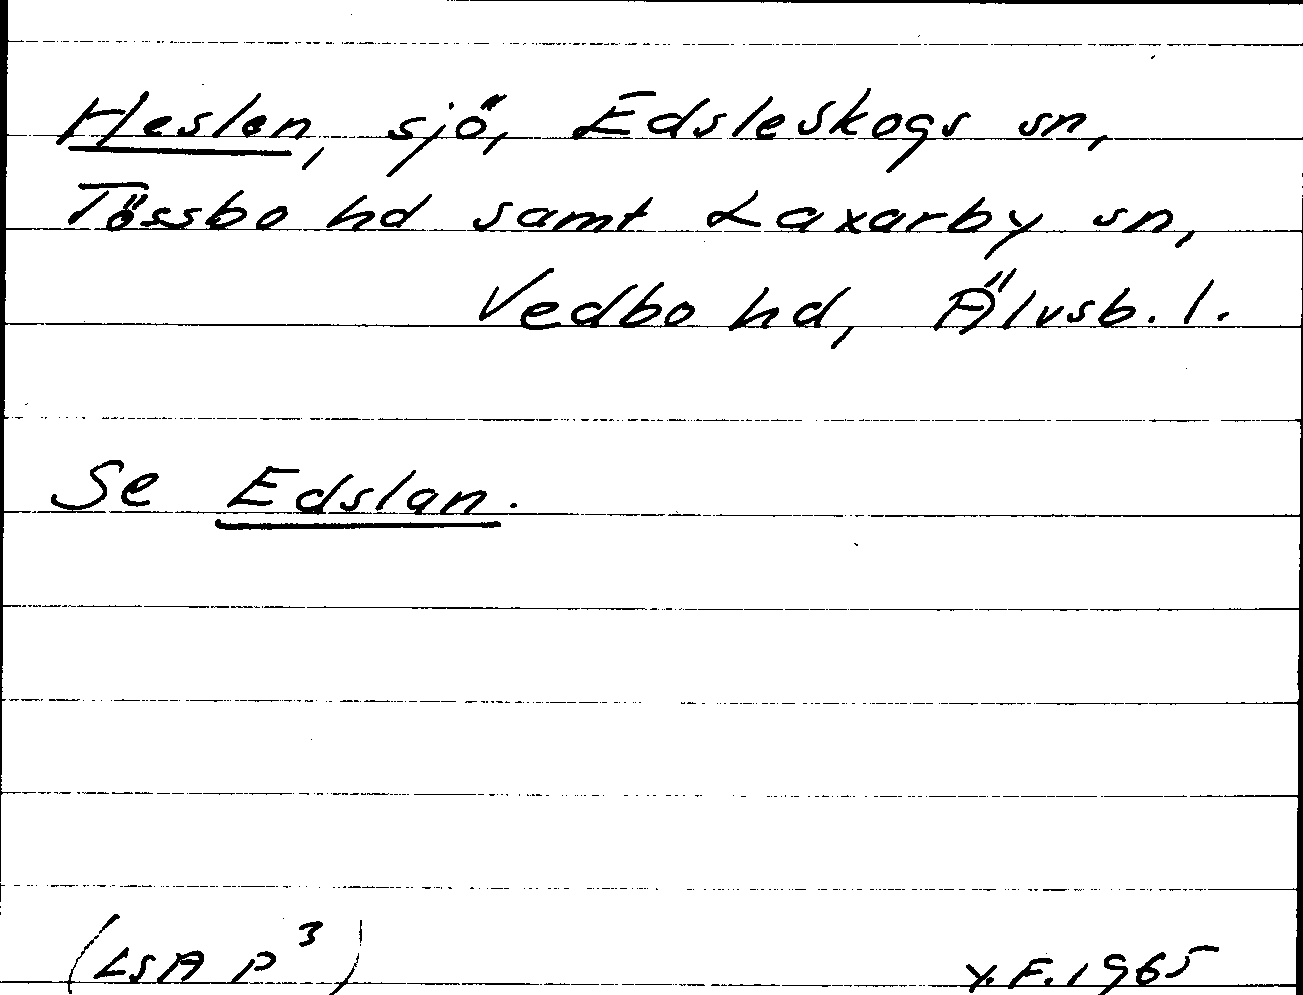 Heslen, sjö, Edsleskogs sn,
Tössbo hd samt Laxarby sn,
Vedbo hd, Älvsb. l.
Se Edslan.
(LSA P³)
Y.F. 1965